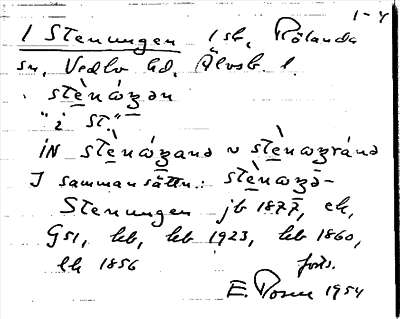 1-4
1 Stenungen 1 sk, Rölanda
sn, Vedbo hd, Älvsb. l.
stènáʒən
"i st."
IN stènáʒanə ~ stènaʒránə
I sammansättn.: stènaʒə-
Stenungen jb 1877, ek,
GS1, kb, kb 1923, kb 1860,
lk 1856 forts.
E. Posse 1954